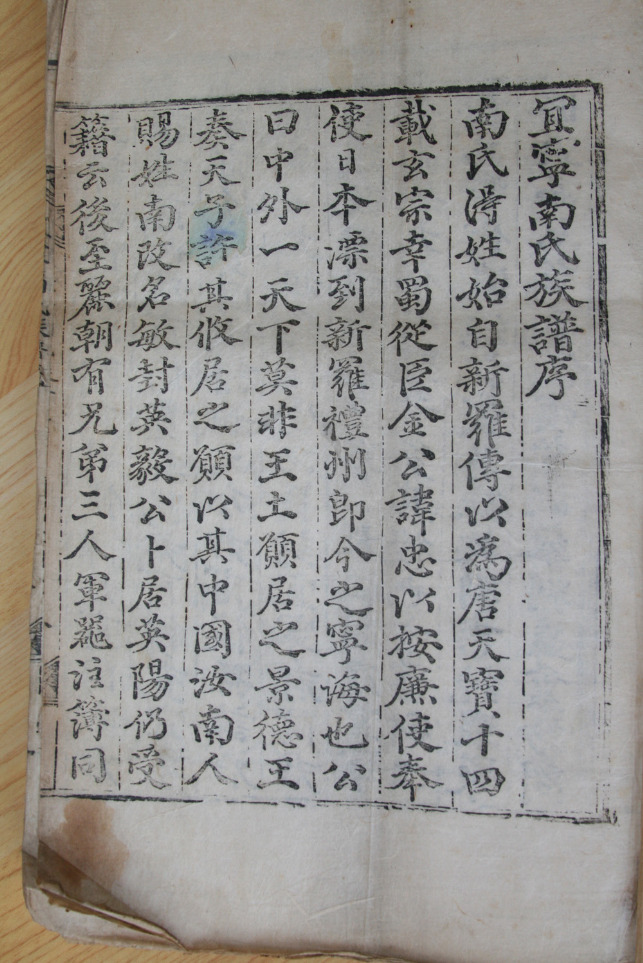 宜寧南氏族譜序
南氏淂姓始自新羅傳以為唐天寶十四
載玄宗幸蜀從臣金公諱忠以按廉使奉
使日本漂到新羅禮州即今之寧海也公
曰中外一天下莫非王土願居之景德王
奏天子許其攸居之願以其中國汝南人
賜姓南改名敏封英毅公卜居英陽仍受
籍云後至麗朝有兄弟三人軍器注簿同